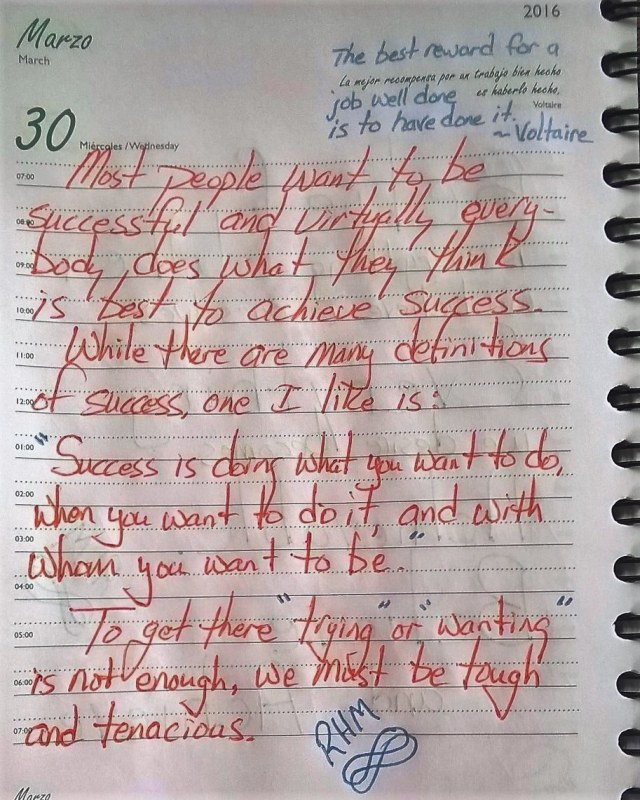 2016
Marzo
March
The best reward for a
La mejor recompensa por un trabajo bien hecho
job well done
es haberlo hecho.
Voltaire
is to have done it.
~ Voltaire
30
Miércoles / Wednesday
07:00
Most people want to be
08:00
successful and virtually every-
09:00
body does what they think
10:00
is best to achieve success.
11:00
While there are many definitions
12:00
of success, one I like is:
01:00
"Success is doing what you want to do,
02:00
when you want to do it, and with
03:00
whom you want to be."
04:00
To get there "trying" or "wanting"
05:00
is not enough, we must be tough
06:00
and tenacious.
07:00
RHM
Marzo